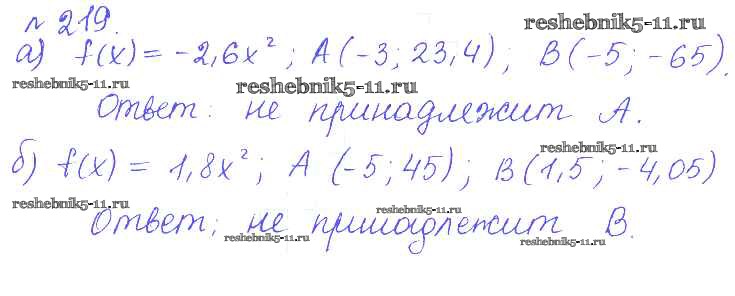 № 219. reshebnik5-11.ru
а) f(x) = -2,6x²; A(-3; 23,4); B(-5; -65).
reshebnik5-11.ru reshebnik5-11.ru
Ответ: не принадлежит A.
reshebnik5-11.ru
б) f(x) = 1,8x²; A (-5; 45); B(1,5; -4,05)
reshebnik5-11.ru reshebnik5-11.ru
Ответ: не принадлежит B.
reshebnik5-11.ru reshebnik5-11.ru